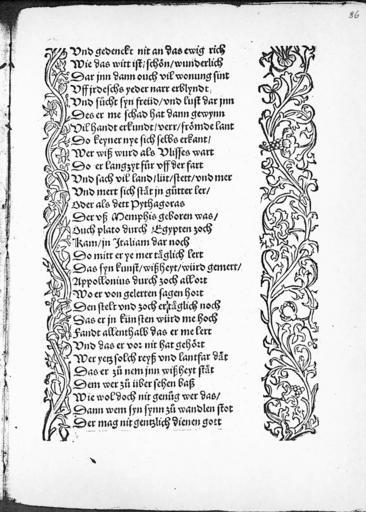 86
Vnd gedenckt nit an das ewig rich
Wie das witt ist/schön/wunderlich
Dar jnn dann ouch vil wonung sint
Vff jrdeschs yeder narr erblyndt
Vnd sůcht syn freüd/vnd lust dar jnn
Des er me schad hat dann gewynn
Vil handt erkundt/verr/frömde lant
Do keyner nye sich selbs erkant/
Wer wiß würd als Vlisses wart
Do er langzyt für vff der fart
Vnd sach vil land/lüt/stett/vnd mer
Vnd mert sich stät jn gůtter ler/
Oder als dett Pythagoras
Der vß Memphis geboren was/
Ouch plato durch Egypten zoch
Kam/jn Jtaliam dar noch
Do mitt er ye mer täglich lert
Das syn kunst/wißheyt/würd gemert/
Appollonius durch zoch all ort
Wo er von gelerten sagen hort
Den stelt vnd zoch er täglich noch
Das er jn künsten würd me hoch
Fandt allenthalb das er me lert
Vnd das er vor nit hat gehört
Wer yetz solch reyß vnd lantfar dät
Das er zů nem jnn wißheyt stät
Dem wer zů über sehen baß
Wie wol doch nit genůg wer das/
Dann wem syn synn zů wandlen stot
Der mag nit gentzlich dienen gott